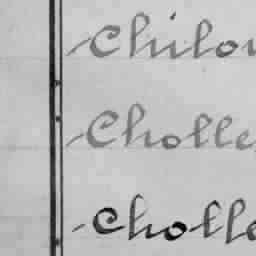 Chilon
Cholle
Cholle